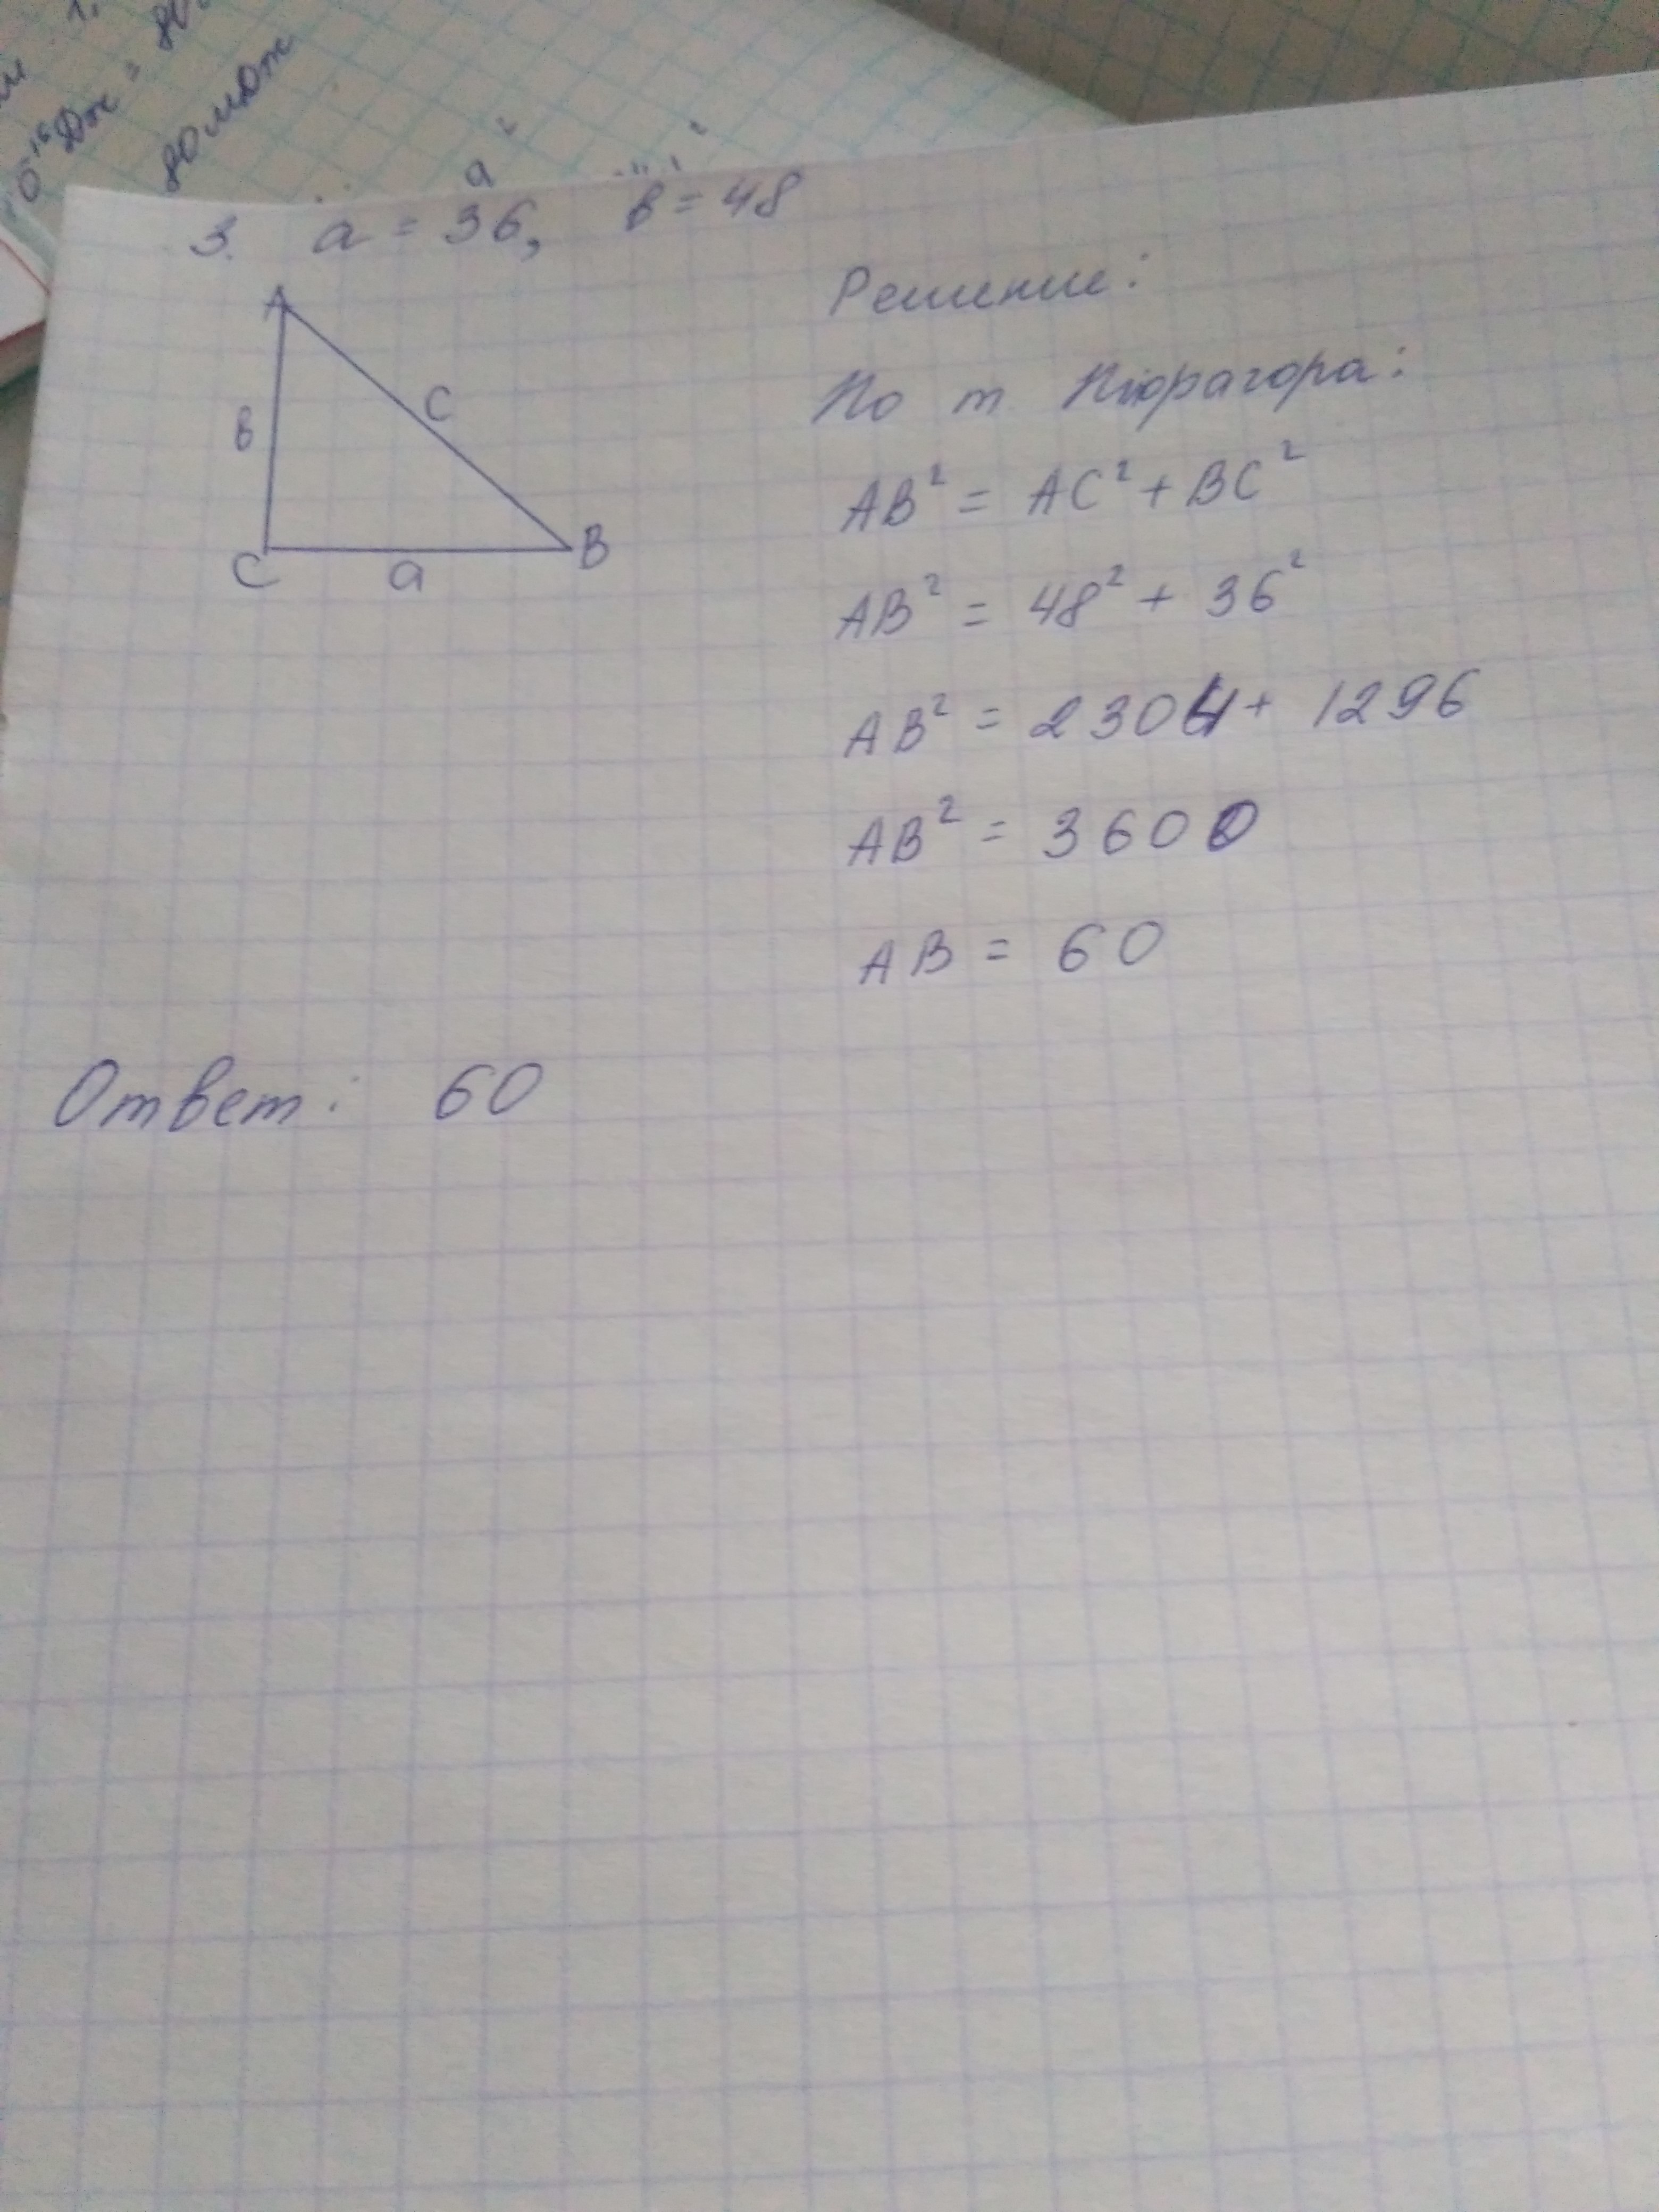 80 мДж
3. a = 36, в = 48
A
в
c
C
a
B
Решение:
По т. Пифагора:
AB² = AC² + BC²
AB² = 48² + 36²
AB² = 2304 + 1296
AB² = 3600
AB = 60
Ответ: 60